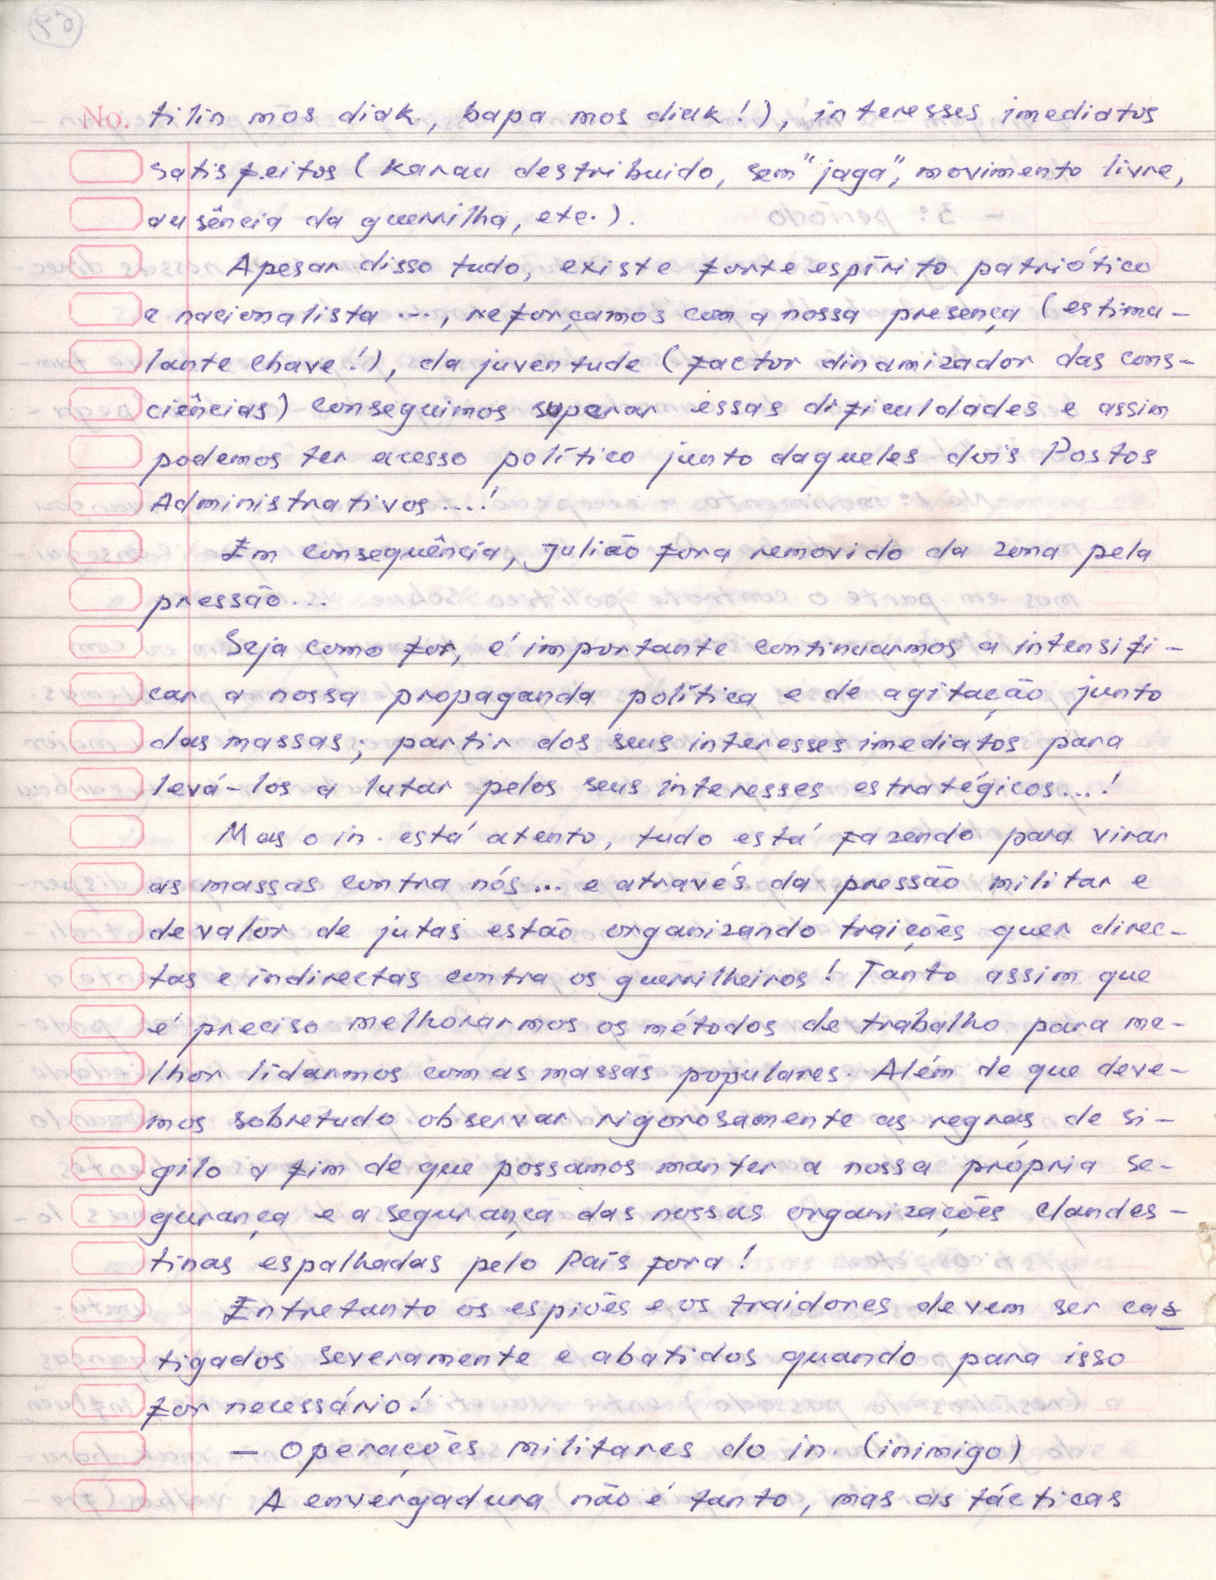 No. tilin mos diak, bapa mos diak!), interesses imediatos
satisfeitos (Karau destribuido, sem "jaga", movimento livre,
ausência da guerrilha, etc.).
Apesar disso tudo, existe forte espírito patriótico
e nacionalista ..., reforçamos com a nossa presença (estimu-
lante chave!), da juventude (factor dinamizador das cons-
ciências) conseguimos superar essas dificuldades e assim
podemos ter acesso político junto daqueles dois Postos
Administrativos...!
Em consequência, Julião fora removido da zona pela
pressão...
Seja como for, é importante continuarmos a intensifi-
car a nossa propaganda política e de agitação junto
das massas; partir dos seus interesses imediatos para
levá-los a lutar pelos seus interesses estratégicos...!
Mas o in. está atento, tudo está fazendo para virar
as massas contra nós... e através da pressão militar e
de valor de jutas estão organizando traições quer direc-
tas e indirectas contra os guerrilheiros! Tanto assim que
é preciso melhorarmos os métodos de trabalho para me-
lhor lidarmos com as massas populares. Além de que deve-
mos sobretudo observar rigorosamente as regras de si-
gilo a fim de que possamos manter a nossa própria se-
gurança e a segurança das nossas organizações clandes-
tinas espalhadas pelo País fora!
Entretanto os espiões e os traidores devem ser cas
tigados severamente e abatidos quando para isso
for necessário!
- Operações militares do in. (inimigo)
A envergadura não é tanto, mas as tácticas